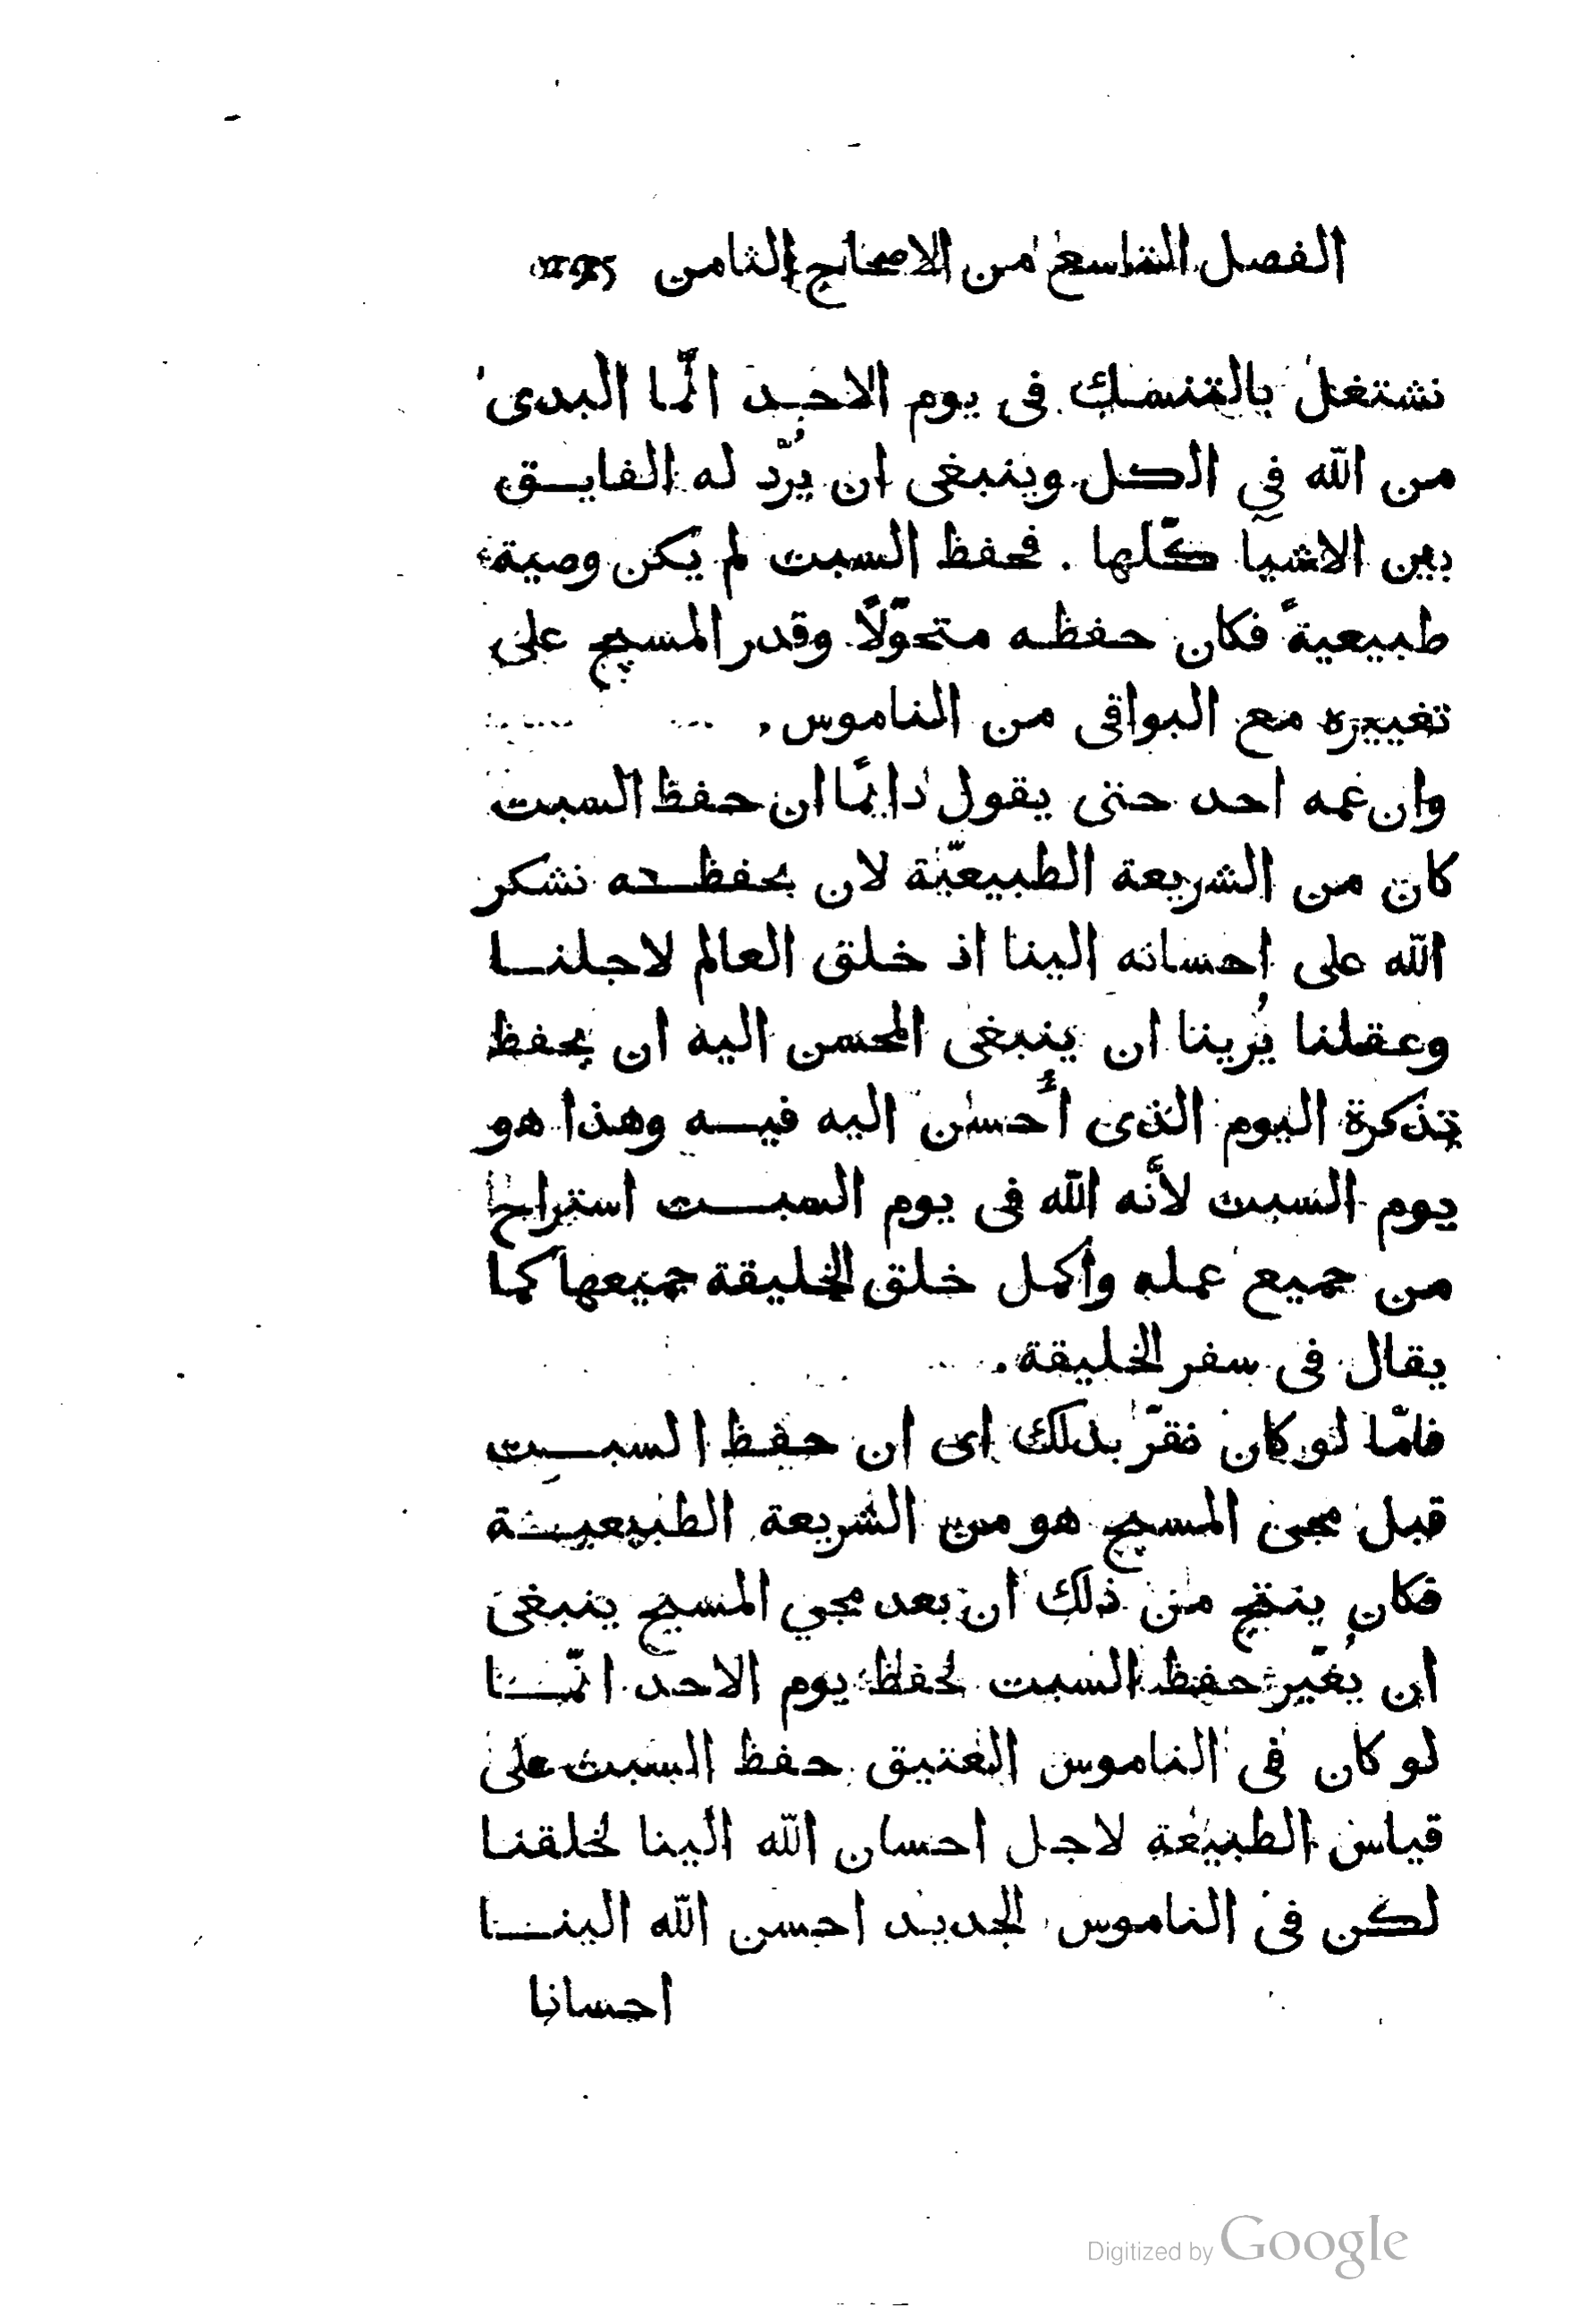 الفصل التاسع من الاصحاح الثامن
نشتغل بالتنسك فى يوم الاحد انّما البدى
من الله في الكل وينبغى ان يُرّد له الفايق
بين الاشيآ كلّها . فحفظ السبت لم يكن وصية
طبيعيةً فكان حفظه متحوّلاً وقدر المسيح على
تغييره مع البواقى من الناموس .
وان غمه احد حتى يقول دايمًا ان حفظ السبت
كان من الشريعة الطبيعيّة لان بحفظه نشكر
الله على احسانه الينا اذ خلق العالم لاجلنا
وعقلنا يُرينا ان ينبغى المحسن اليه ان يحفظ
تذكرة اليوم الذى أُحسن اليه فيه وهذا هو
يوم السبت لأنه الله فى يوم السبت استراح
من جميع عمله وأكمل خلق الخليقة جميعها كما
يقال فى سفر الخليقة .
فامّا لو كان نقرّ بذلك اى ان حفظ السبت
قبل مجى المسيح هو من الشريعة الطبيعية
فكان ينتج من ذلك ان بعد مجي المسيح ينبغى
ان يُغيّر حفظ السبت لحفظ يوم الاحد انّما
لو كان فى الناموس العتيق حفظ السبت على
قياس الطبيعة لاجل احسان الله الينا لخلقنا
لكن فى الناموس الجديد احسن الله الينا
احسانا
Digitized by Google